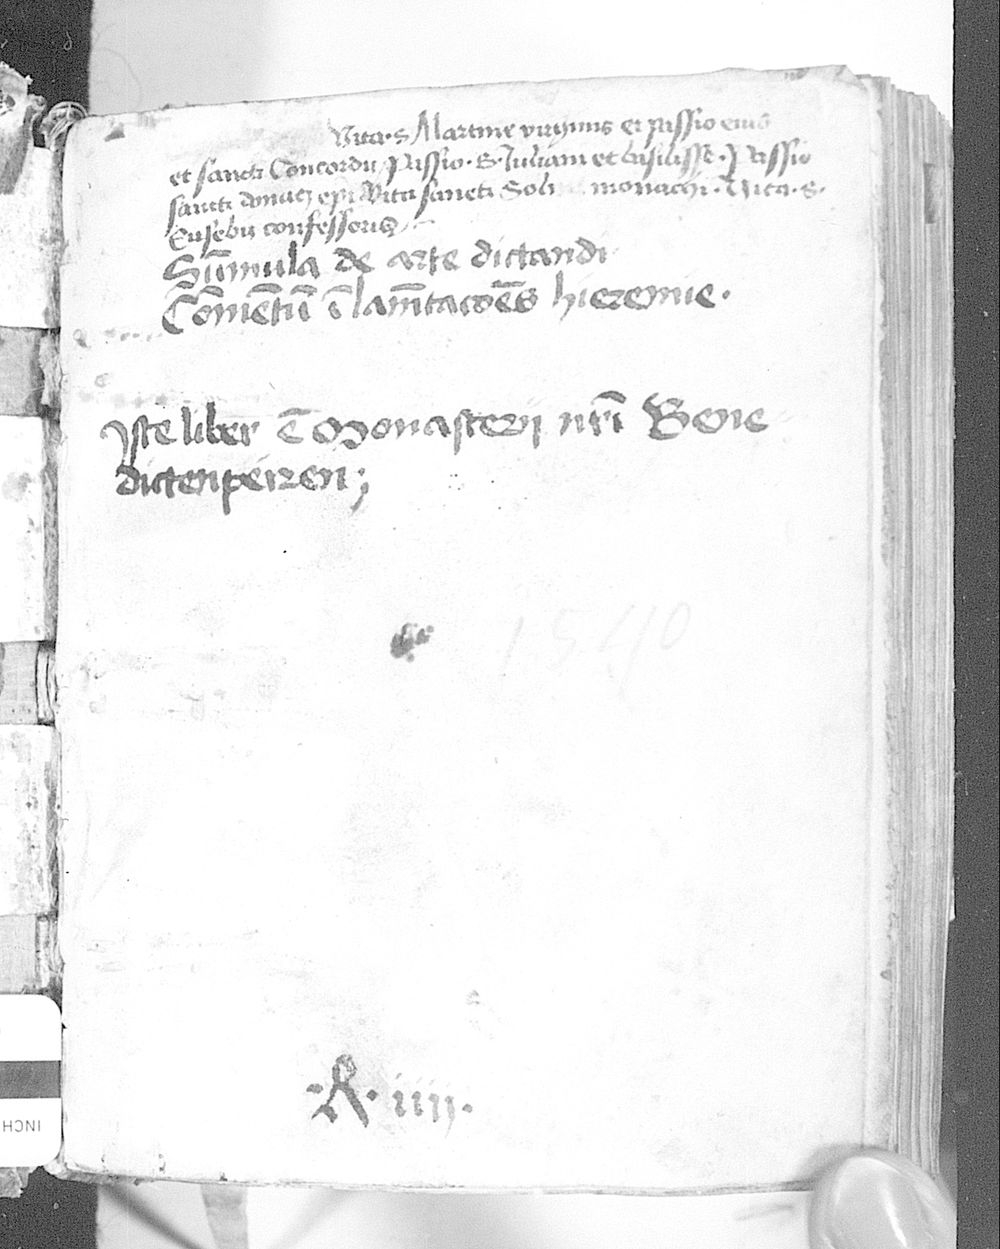 Vita · S Martine virginis et passio eius
et sancti Concordii Passio · S · Iuliani et basilisse · Passio
sancti donati epi Vita sancti Soli monachi · Vita · S ·
Eusebii confessoris
Sūmula de arte dictandi
Cōmētū ī lamētacoēs hieremie ·
Iste liber ē Monasterij nr̄i Bene
dictenpeẅren ;
1540
· R · iiij ·
INCH